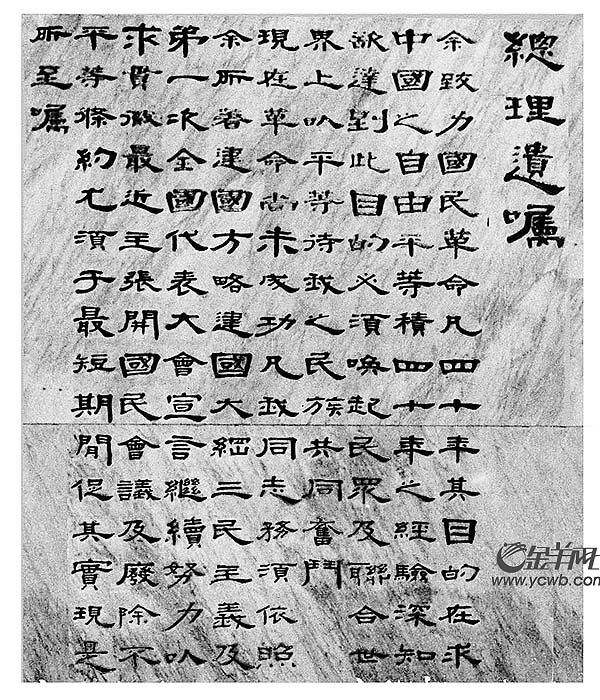 總理遺囑
余致力國民革命凡四十年其目的在求
中國之自由平等積四十年之經驗深知
欲達到此目的必須喚起民眾及聯合世
界上以平等待我之民族共同奮鬥
現在革命尚未成功凡我同志務須依照
余所著建國方略建國大綱三民主義及
第一次全國代表大會宣言繼續努力以
求貫徹最近主張開國民會議及廢除不
平等條約尤須于最短期閒促其實現是
所至囑
金羊网
www.ycwb.com